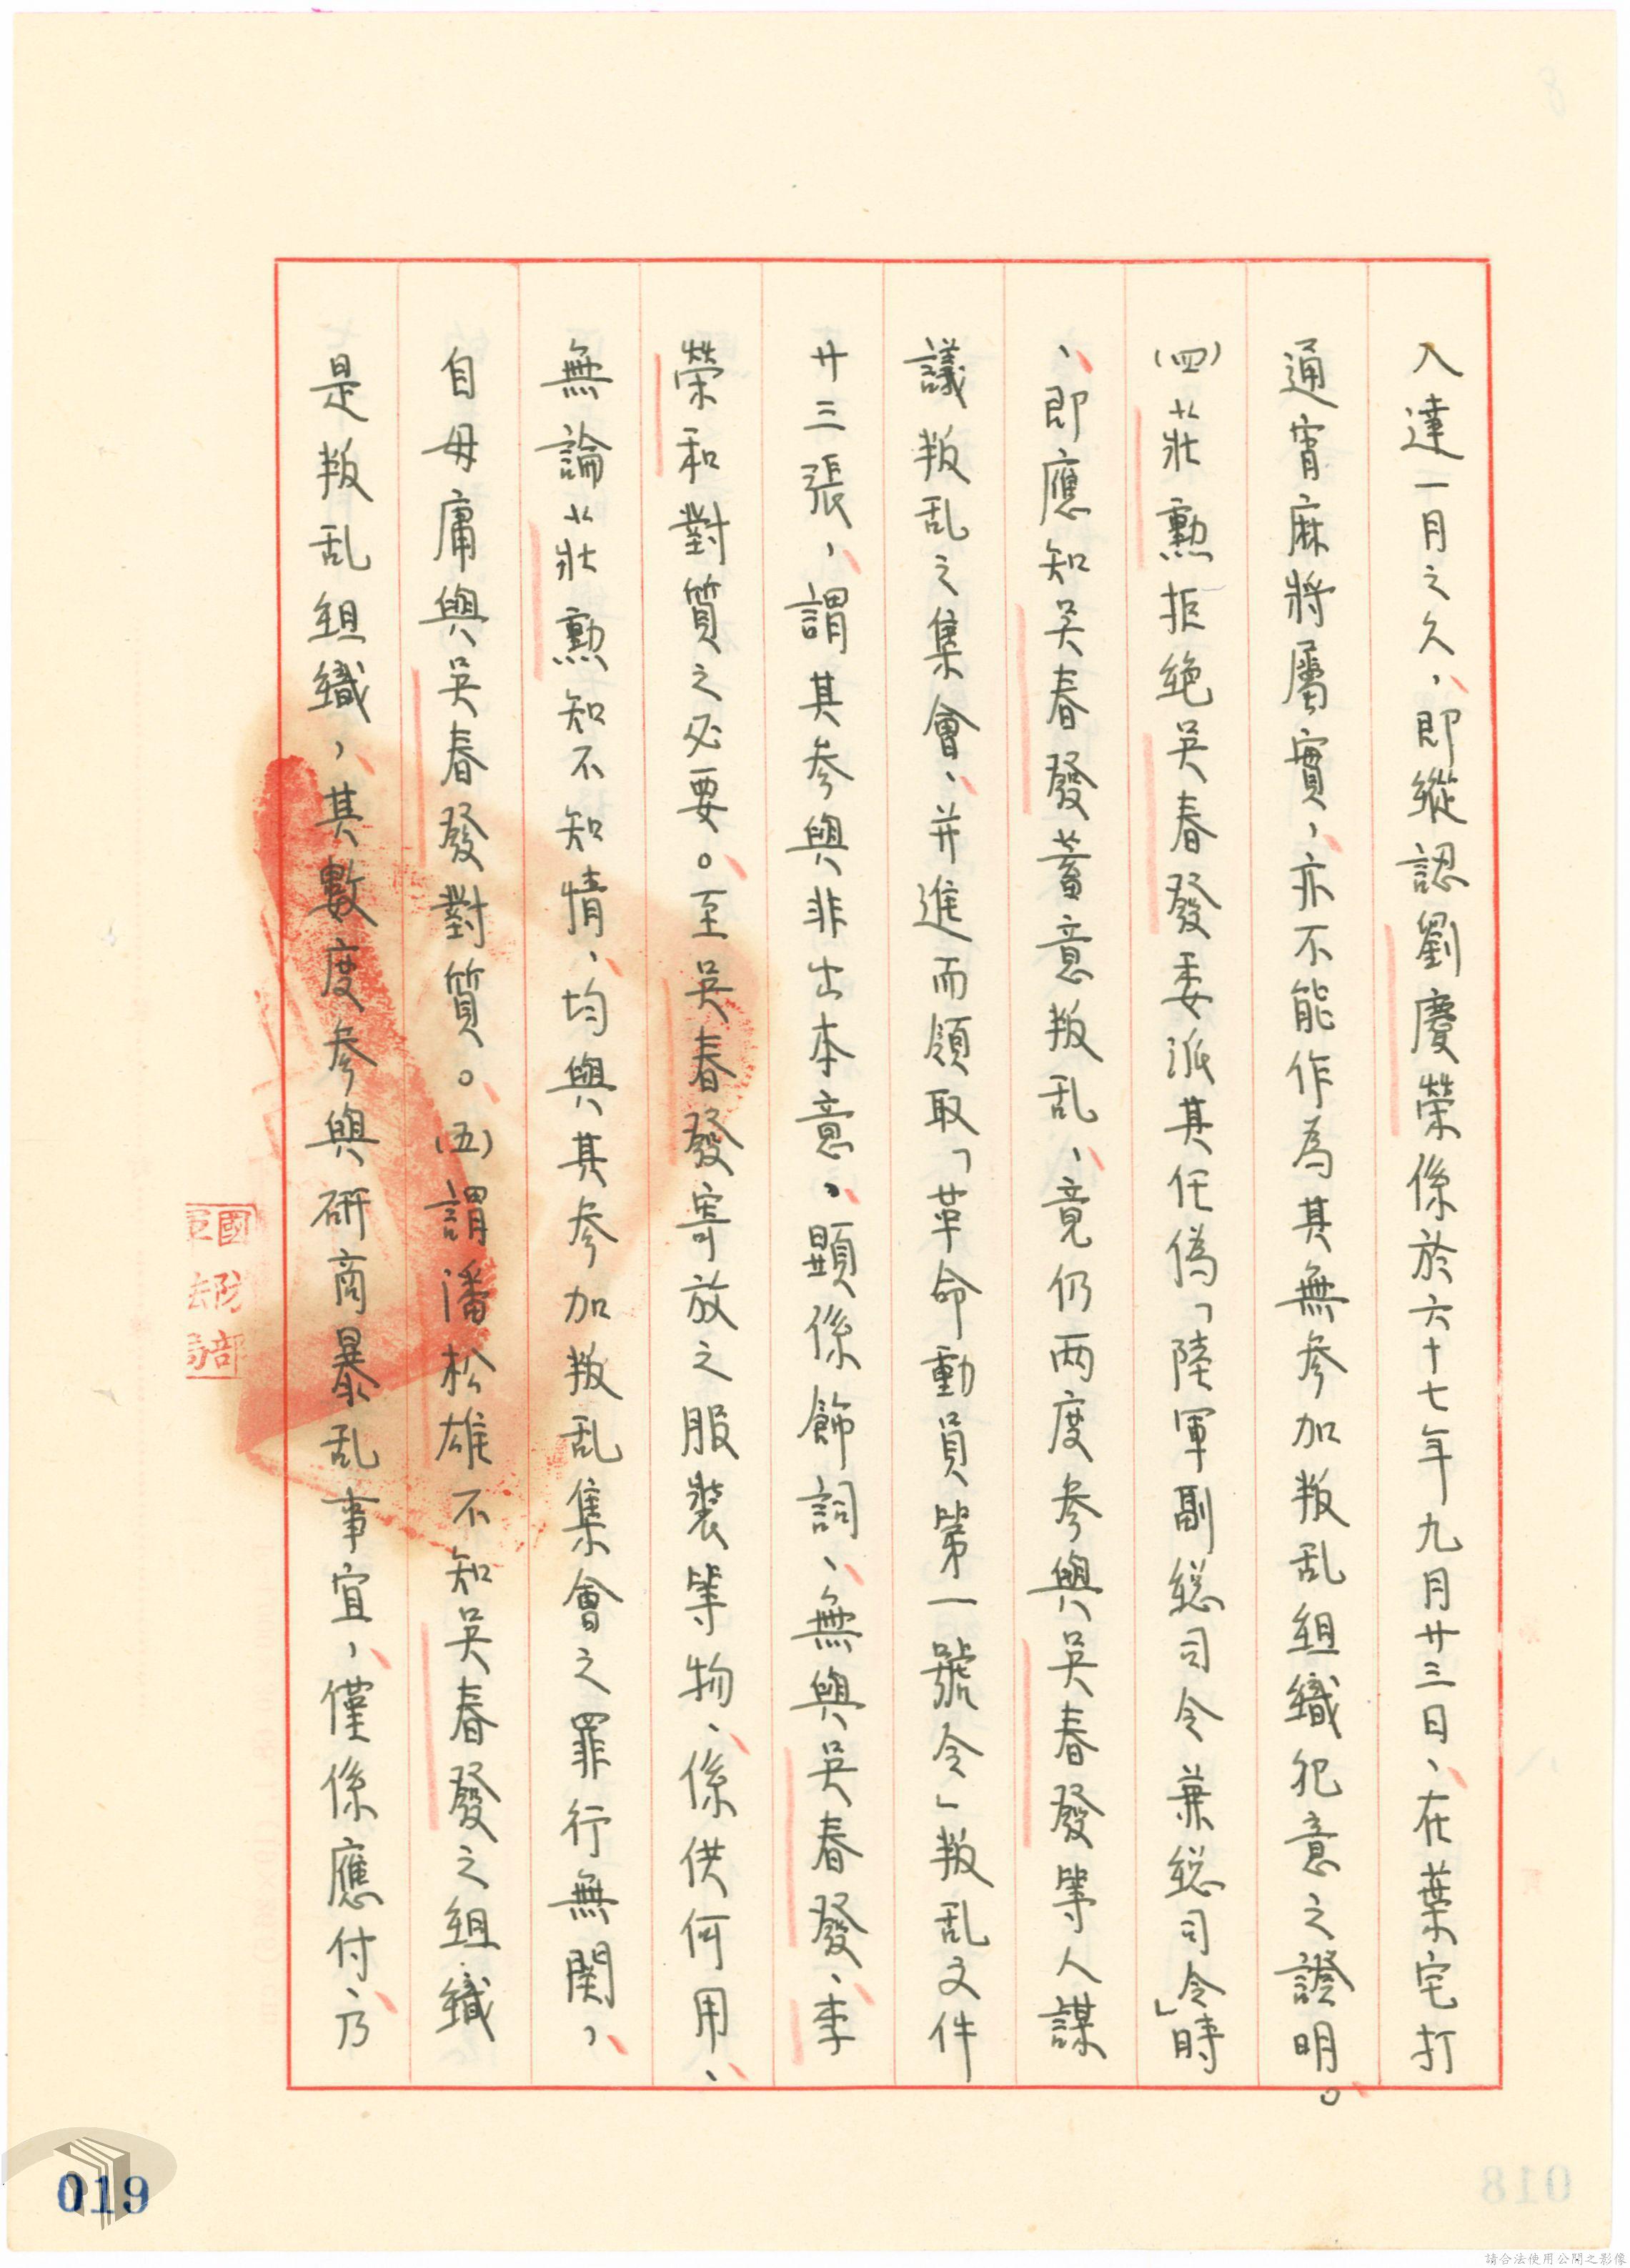 入達一月之久，即縱認劉慶榮係於六十七年九月廿三日，在葉宅打
通宵麻將屬實，亦不能作為其無參加叛乱組織犯意之證明。
(四)莊勲拒絕吳春發委派其任偽「陸軍副総司令兼総司令」時
，即應知吳春發蓄意叛乱，竟仍両度參與吳春發等人謀
議叛乱之集會，并進而領取「革命動員第一號令」叛乱文件
廿三張，謂其參與非出本意。顯係飾詞，無與吳春發，李
榮和對質之必要。至吳春發寄放之服裝等物，係供何用，
無論莊勲知不知情，均與其參加叛乱集會之罪行無関，
自毋庸與吳春發對質。(五)謂潘松雄不知吳春發之組織
是叛乱組織，其數度參與研商暴乱事宜，僅係應付，乃
國防部
軍法局
019
018
8
請合法使用公開之影像